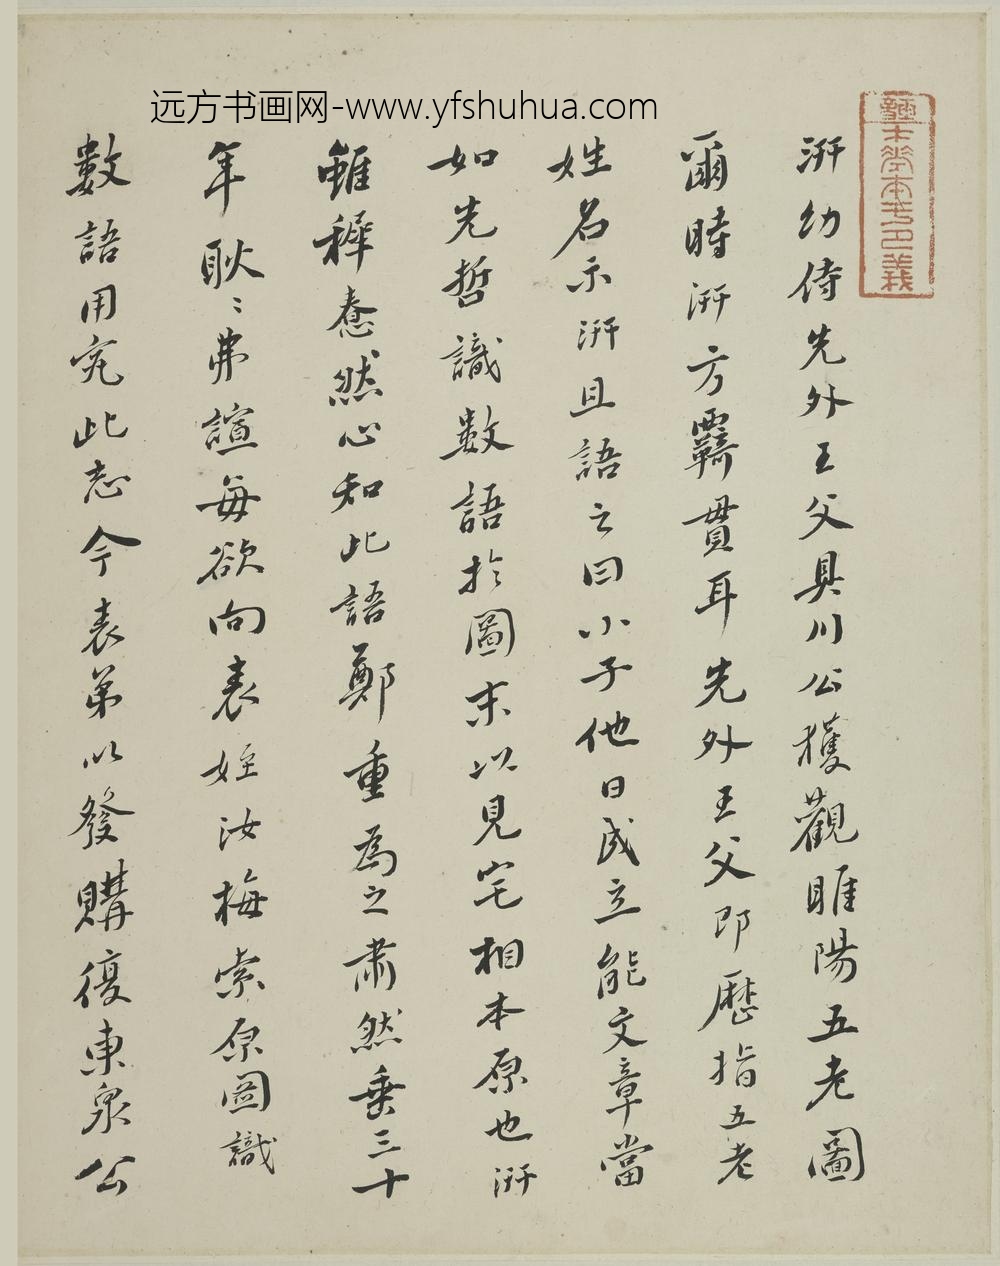 远方书画网-www.yfshuhua.com
汧幼侍先外王父具川公獲觀睢陽五老圖
爾時汧方覊貫耳先外王父即歷指五老
姓名示汧且語之曰小子他日成立能文章當
如先哲識數語於圖末以見宅相本原也汧
雖穉惷然心知此語鄭重為之肅然垂三十
年耿〻弗諠每欲向表姪汝梅索原圖識
數語用完此志今表弟以發購復東泉公